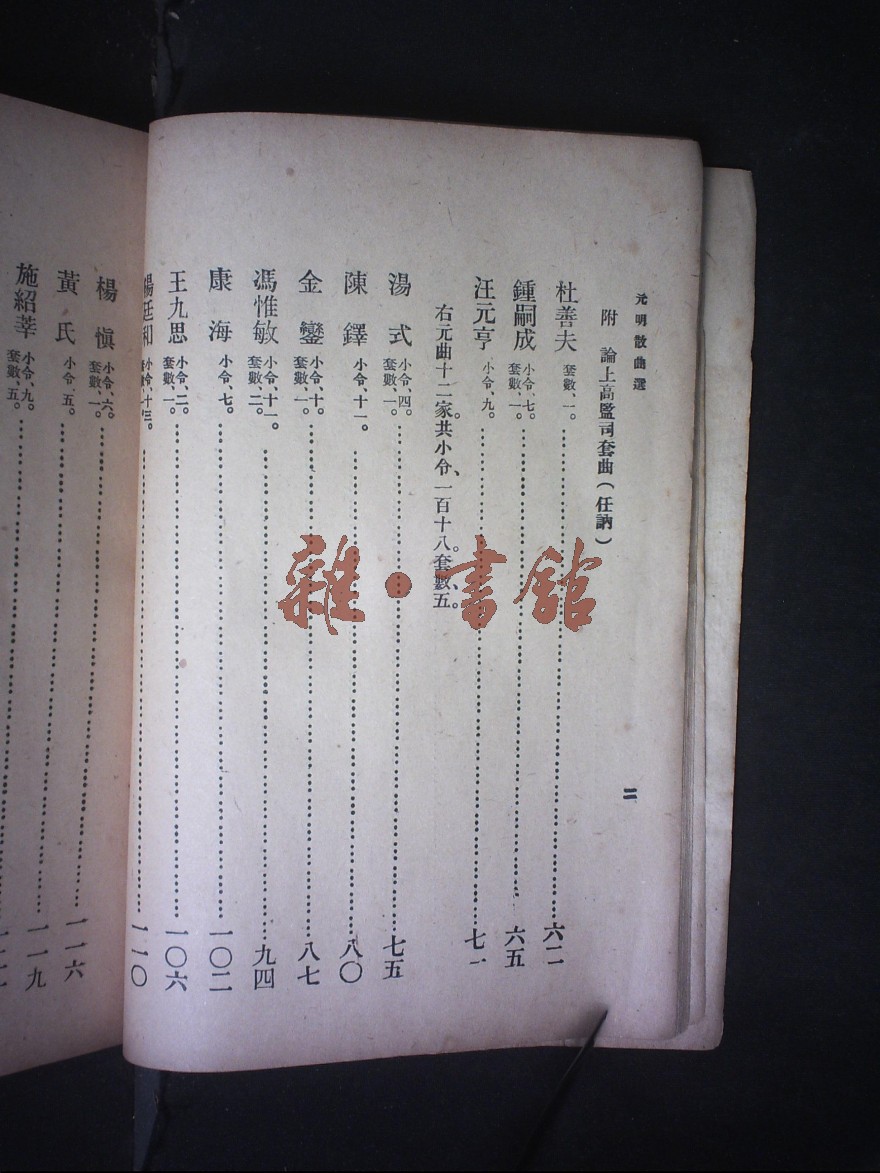 元明散曲選
二
附　論上高監司套曲（任訥）
杜善夫 套數、一。……六二
鍾嗣成 小令、七。套數、一。……六五
汪元亨 小令、九。……七一
右元曲十二家。共小令、一百十八。套數、五。
湯　式 小令、四。套數、一。……七五
陳　鐸 小令、十一。……八〇
金　鑾 小令、十。套數、一。……八七
馮惟敏 小令、十一。套數、二。……九四
康　海 小令、七。……一〇二
王九思 小令、二。套數、一。……一〇六
楊廷和 小令、十三。……一一〇
楊　愼 小令、六。套數、一。……一一六
黃　氏 小令、五。……一一九
施紹莘 小令、九。套數、五。……
雜·書館